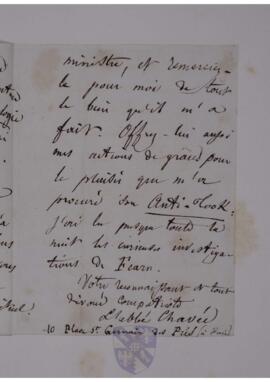 ministre, et remerciez-
le pour moi de tout
le bien qu'il m'a
fait. Offrez-lui aussi
mes actions de grâces pour
le plaisir que m'a
procuré son Anti-Tooke.
J'ai lu presque toute la
nuit les curieuses investiga-
tions de Fearn.
Votre reconnaissant et tout
dévoué compatriote
L'abbé Chavée
10 Place St Germain des Prés, à Paris